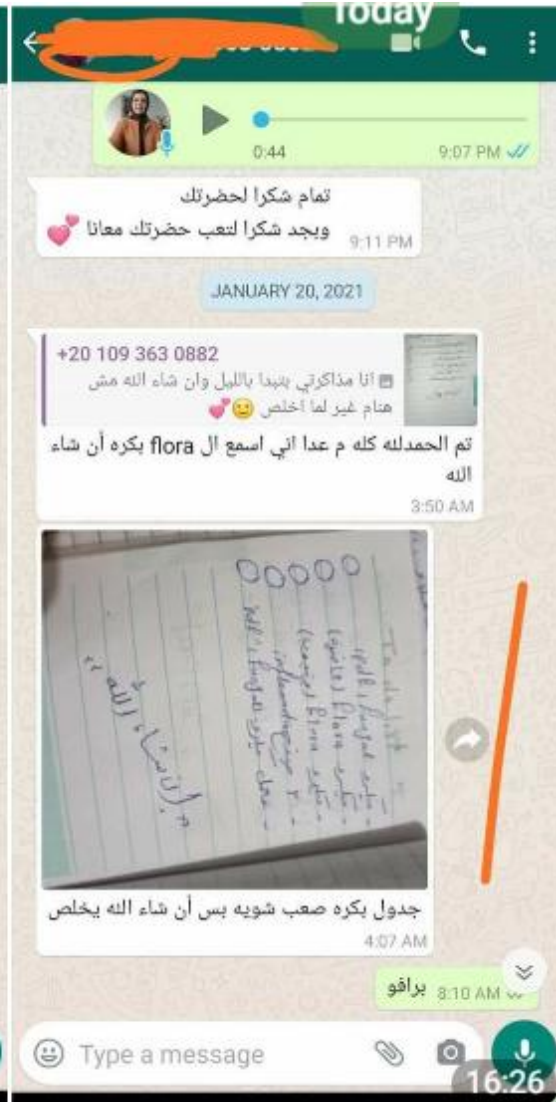 Today
0:44
9:07 PM
تمام شكرا لحضرتك
وبجد شكرا لتعب حضرتك معانا 💕
9:11 PM
JANUARY 20, 2021
+20 109 363 0882
انا مذاكرتي بتبدا بالليل وان شاء الله مش
هنام غير لما اخلص 🙂💕
تم الحمدلله كله م عدا اني اسمع ال flora بكره أن شاء
الله
3:50 AM
To do list
"إن شاء الله"
جدول بكره صعب شويه بس أن شاء الله يخلص
4:07 AM
برافو
8:10 AM
Type a message
16:26